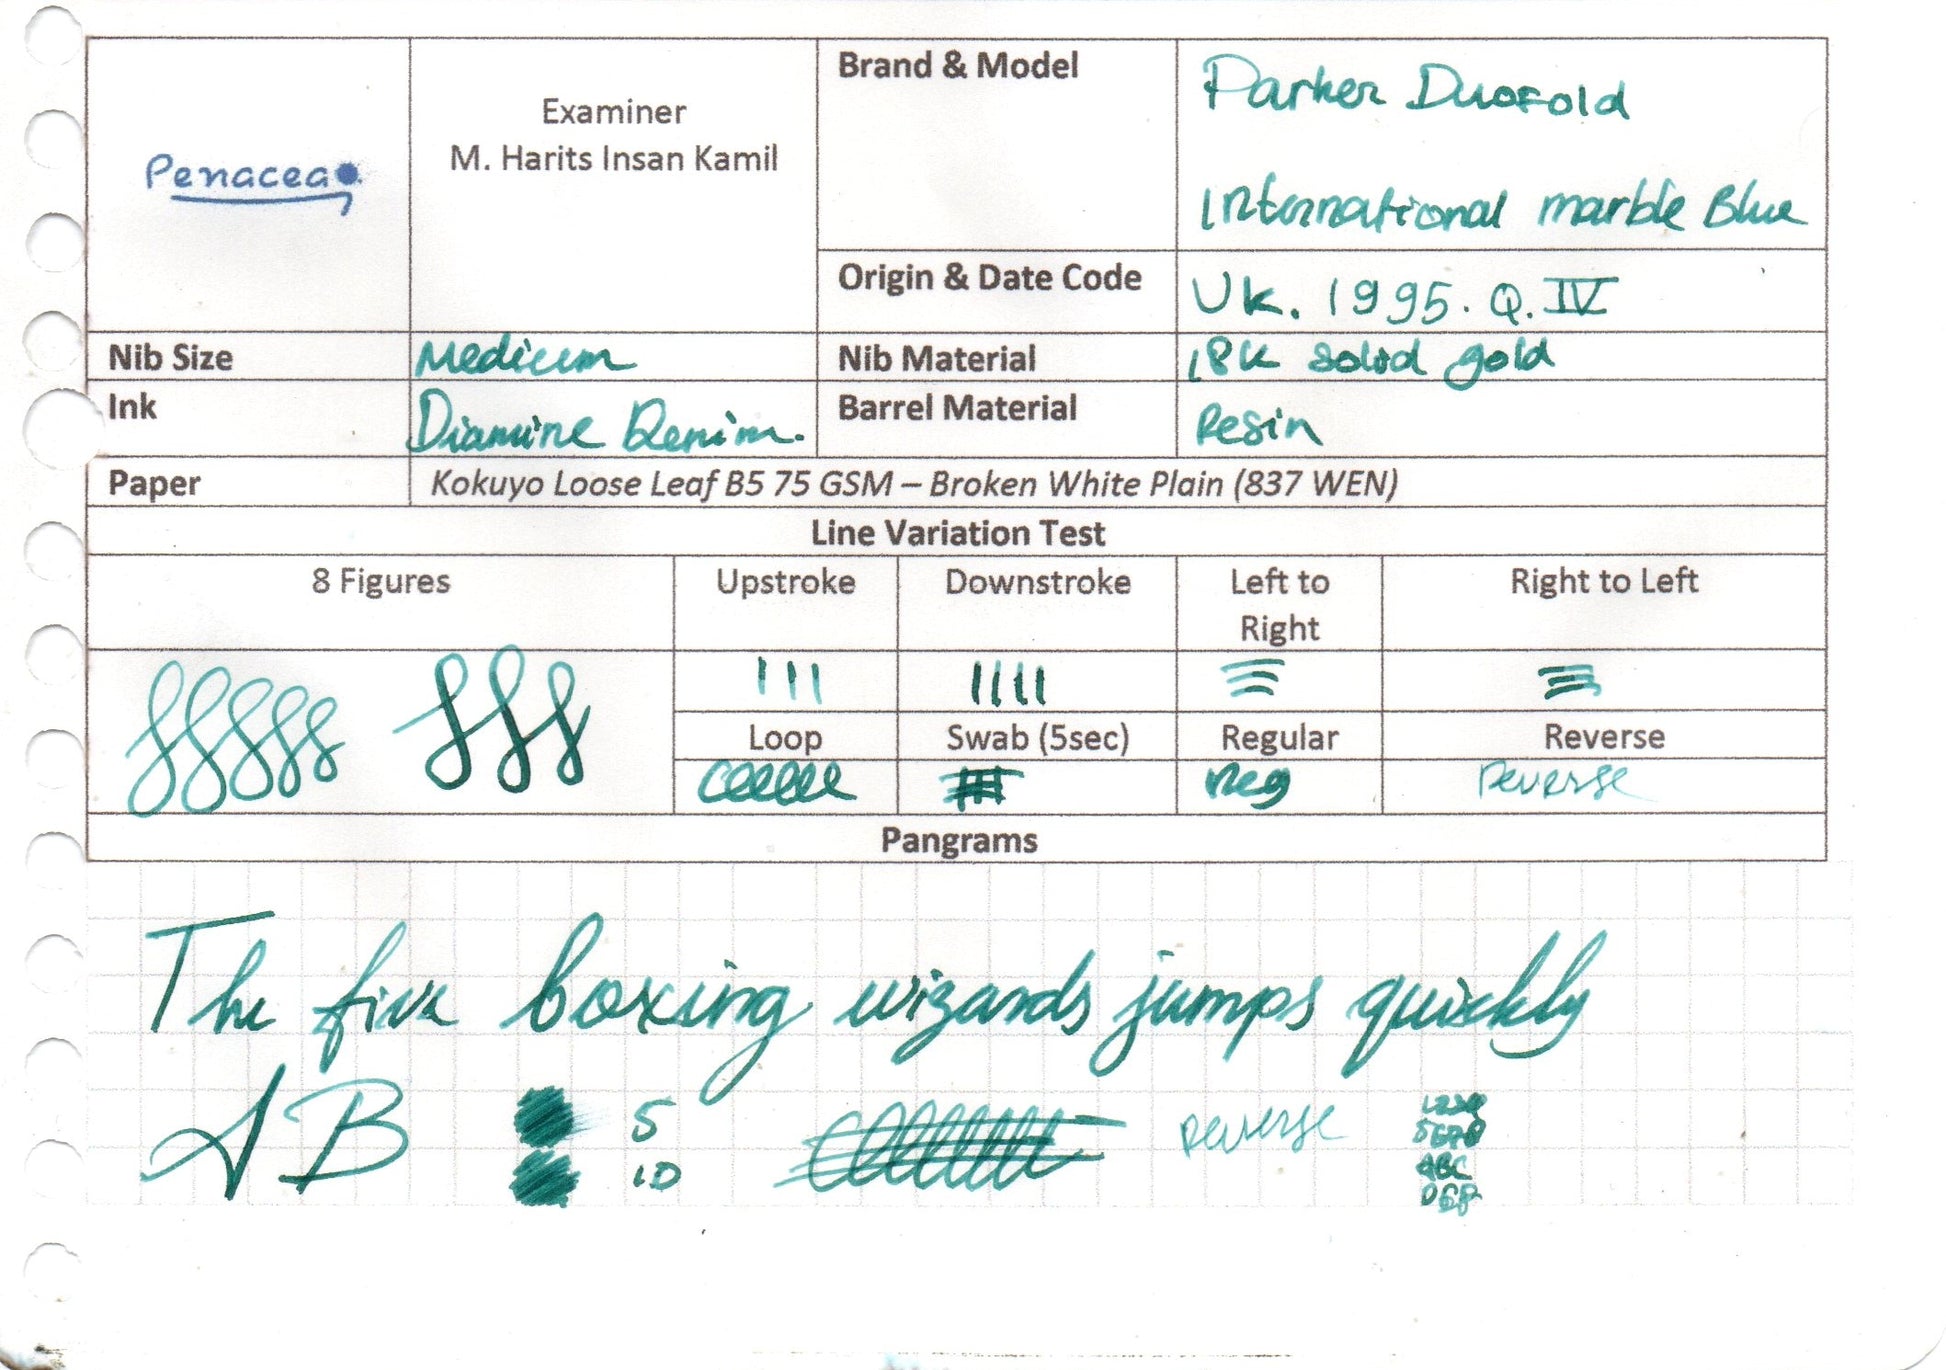 Penacea
Examiner
M. Harits Insan Kamil
Brand & Model
Parker Duofold
International marble Blue
Origin & Date Code
UK. 1995. Q. IV
Nib Size
Medium
Nib Material
18K solid gold
Ink
Diamine Denim.
Barrel Material
Resin
Paper
Kokuyo Loose Leaf B5 75 GSM – Broken White Plain (837 WEN)
Line Variation Test
8 Figures
Upstroke
Downstroke
Left to
Right
Right to Left
Loop
Swab (5sec)
Regular
Reverse
Reg
Reverse
Pangrams
The five boxing wizards jumps quickly
A B
5
10
reverse
1230
5678
ABC
DEF